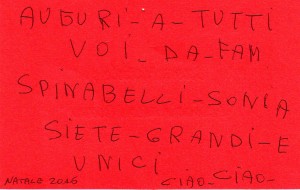 AUGURI-A-TUTTI
VOI-DA-FAM
SPINABELLI-SONIA
SIETE-GRANDI-E
UNICI
NATALE 2016 CIAO-CIAO-